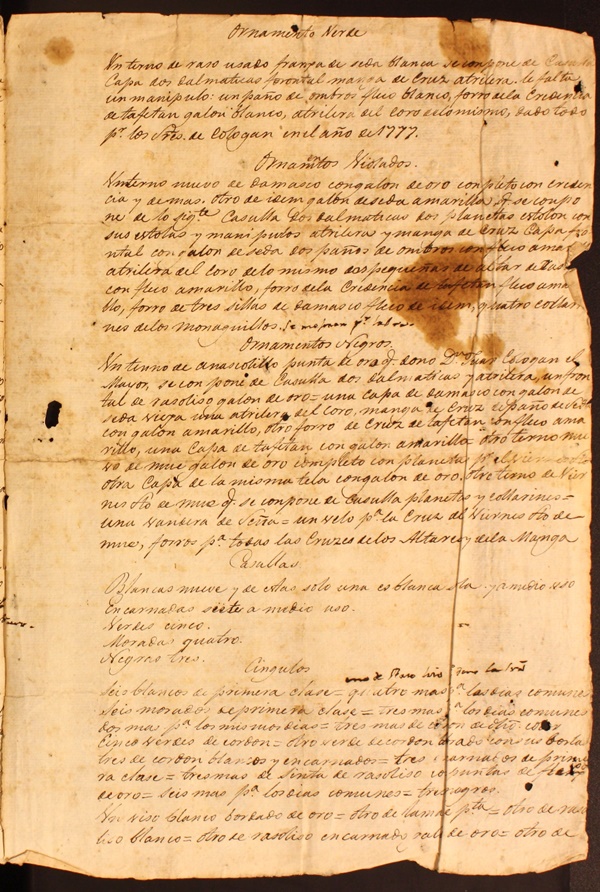 Ornamento Verde
Un terno de raso usado franxa de seda blanca se conpone de Casulla
Capa dos dalmaticas forontal manga de Cruz atrilera. le falta
un manipulo: un paño de ombros fleco blanco, forro de la Credencia
de tafetan galon blanco, atrilera del Coro de lo mismo, dado todo
pr. los Sres. de Cologan en el año de 1777.
Ornamtos Violados.
Un terno nuevo de damasco con galon de oro conpleto con creden
cia y demas. otro de idem galon de seda amarilla q. se conpo
ne de lo sigte. Casulla dos dalmaticas dos planetas estolon con
sus estolas y manipulos atrilera y manga de Cruz Capa fron
tal con galon de seda dos paños de ombros con fleco amar
atrilera del Coro de lo mismo dos pequeñas de altar de
con fleco amarillo, forro de la Credencia de tafetan fleco ama
llo, forro de tres sillas de damasco fleco de idem, quatro collari
nes de los Monaguillos.
Ornamentos Negros.
Un terno de anascotillo punta de oro q. dono Dn. Juan Cologan el
Mayor, se conpone de Casulla dos dalmaticas y atrilera, un fron
tal de rasoliso galon de oro = una Capa de damasco con galon de
seda vieja una atrilera del Coro, manga de Cruz de paño de seda
con galon amarillo, otro forro de Cruz de tafetan con fleco ama
rillo, una Capa de tafetan con galon amarillo = otro terno nue
vo de mue galon de oro completo con planetas pa. el Viernes Sto
otra Capa de la misma tela con galon de oro. otro terno de Vier
nes Sto de mue q. se conpone de Casulla planetas y collarines =
una vandera de Seda = un velo pa. la Cruz del Viernes Sto de
mue, forros pa. todas las Cruzes de los Altares y de la Manga
Casullas
Blancas nueve y de estas solo una es blanca sola y a medio uso
Encarnadas siete a medio uso.
Verdes cinco.
Moradas quatro.
Negras tres.
Cingulos
Seis blancos de primera clase = quatro mas pa. las dias comunes
Seis morados de primera clase = tres mas pa. los dias comunes
dos mas pa. los mismos dias = tres mas de
Cinco verdes de cordon = otro verde de cordon con sus borlas
tres de cordon blancos y encarnados = tres encarnados de prime
ra clase = tres mas de sinta de rasoliso con puntas de
de oro = seis mas pa. los dias comunes = tres negros.
Un viso blanco bordado de oro = otro de lama de pta = otro de raso
liso blanco = otro de rasoliso encarnado galon de oro = otro de